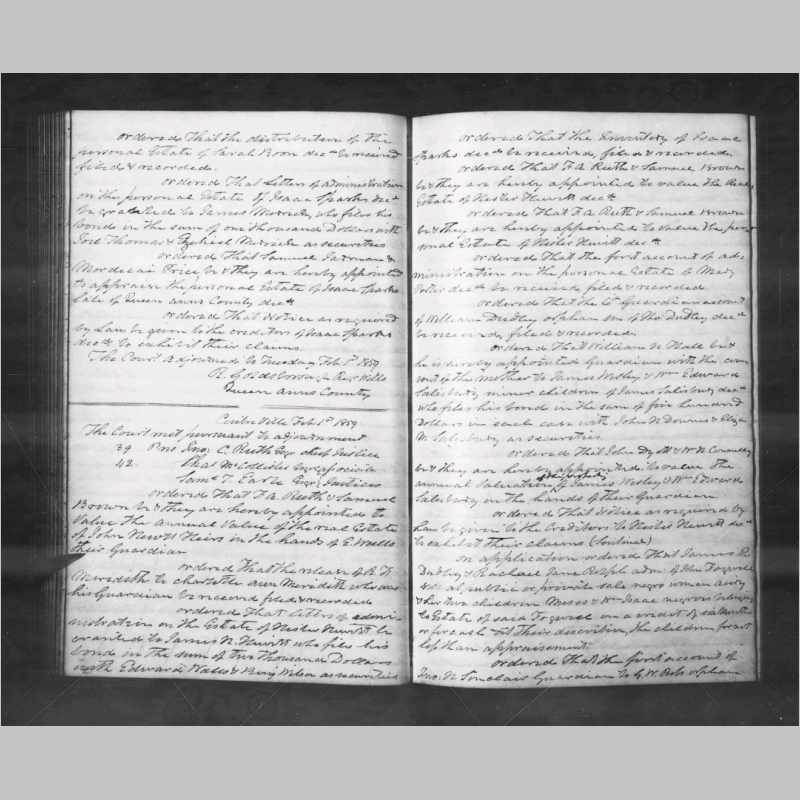 ordered That the distribution of the
personal Estate of Sarah Boon decd be received
filed & recorded.
ordered That Letters of administration
on the personal Estate of Isaac Sparks decd
be granted to James Merrick who files his
bond in the sum of one thousand Dollars with
Joel Thomas & Ezekiel Merrick as securities
ordered That Samuel &
Mordecai Price be & they are hereby appointed
to appraise the personal Estate of Isaac Sparks
late of Queen Anns County decd
ordered That Notice as required
by Law be given to the creditors of Isaac Sparks
decd to exhibit their claims.
The Court adjourned to Tuesday Feb 1st 1859
R. Goldsborough Reg Wills
Queen Anns County
Centreville Feb 1st 1859
The Court met pursuant to adjournment
39 Pres Jno. C. Ruth Esqr chief Justice
42. Thos McCollister Esqr associate
Saml T. Earle Esqr Justices
ordered That F A Ruth & Samuel
Brown be & they are hereby appointed to
value the annual value of the real Estate
of John Heirs in the hands of E. Walls
their Guardian
ordered That the release of R T
Meredith to Charlotte Ann Meredith who was
his Guardian be received filed & recorded
ordered That letters of admin
istration on the Estate of Hester Hewitt be
granted to James N. Hewitt who files his
bond in the sum of two thousand Dollars
with Edward Walls & Benj Wilson as securities
ordered That the Inventory of Isaac
Sparks decd be received, filed & recorded.
ordered That F A Ruth & Samuel Brown
be & they are hereby appointed to value the Real
Estate of Hester Hewitt decd
ordered That F A Ruth & Samuel Brown
be & they are hereby appointed to value the per
sonal Estate of Hester Hewitt decd
ordered That the first account of ad-
ministration on the personal Estate of Mary
decd be received, filed & recorded
ordered That the Guardian account
of William Dudley orphan of Dudley decd
be received, filed & recorded.
ordered That William N Hall be &
he is hereby appointed Guardian with the con
sent of the mother to James Wesley & Wm Edward
Salisbury minor children of James Salisbury decd
who files his bond in the sum of five hundred
Dollars in each case with John N Downes & Eliza
N. Salisbury as securities
ordered That John & W N Connolly
be & they are hereby appointed to value the
annual valuation of the property of James Wesley & Wm Edward
Salisbury in the hands of their Guardian
ordered That Notice as required by
Law be given to the Creditors of Hester Hewitt decd
to exhibit their claims
on application ordered That James R
Dudley & Rachael Jane Ralph adm of
sell at public or private sale negro woman
& her two children Moses & Wm Isaac negroes belonging
to Estate of said on a credit of six Months
or for cash at their discretion, the children for not
less than appraisement.
ordered That the first account of
Jno. N Sinclair Guardian to G. W. orphan